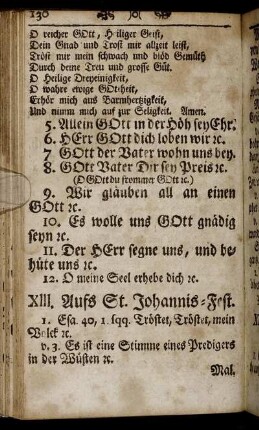 130
O reicher GOtt, Heiliger Geist,
Dein Gnad und Trost mir allzeit leist,
Tröst mir mein schwach und blöd Gemüth
Durch deine Treu und grosse Güt.
O Heilige Dreyeinigkeit,
O wahre ewige GOttheit,
Erhör mich aus Barmhertzigkeit,
Und nimm mich auf zur Seligkeit. Amen.
5. Allein GOtt in der Höh sey Ehr.
6. HErr GOtt dich loben wir ꝛc.
7. GOtt der Vater wohn uns bey.
8. GOtt Vater Dir sey Preis ꝛc.
(O GOtt du frommer GOtt ꝛc.)
9. Wir gläuben all an einen
GOtt ꝛc.
10. Es wolle uns GOtt gnädig
seyn ꝛc.
11. Der HErr segne uns, und be-
hüte uns ꝛc.
12. O meine Seel erhebe dich ꝛc.
XIII. Aufs St. Johannis-Fest.
1. Esa. 40, 1. sqq. Tröstet, Tröstet, mein
Volck ꝛc.
v. 3. Es ist eine Stimme eines Predigers
in der Wüsten ꝛc.
Mal.